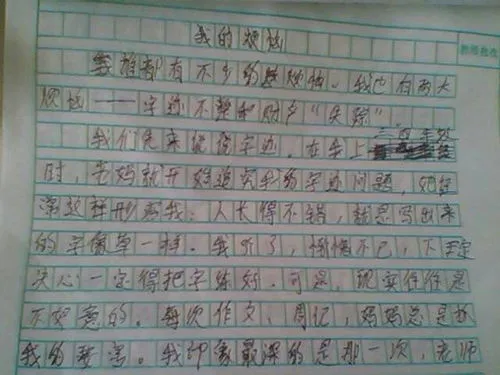 我的烦恼
谁都有不少的烦恼。我也有两大
烦恼——字迹不整和财产“失踪”
我们先来说说字迹。在我上三年级
时，老妈就开始追究我的字迹问题，她经
常这样形容我：人长得不错，就是写出来
的字像草一样。我听了，惭愧不已，下定
决心一定得把字练好。可是，现实往往是
不如意的。每次作文、周记，妈妈总是
我的要害。我印象最深的是那一次，老师